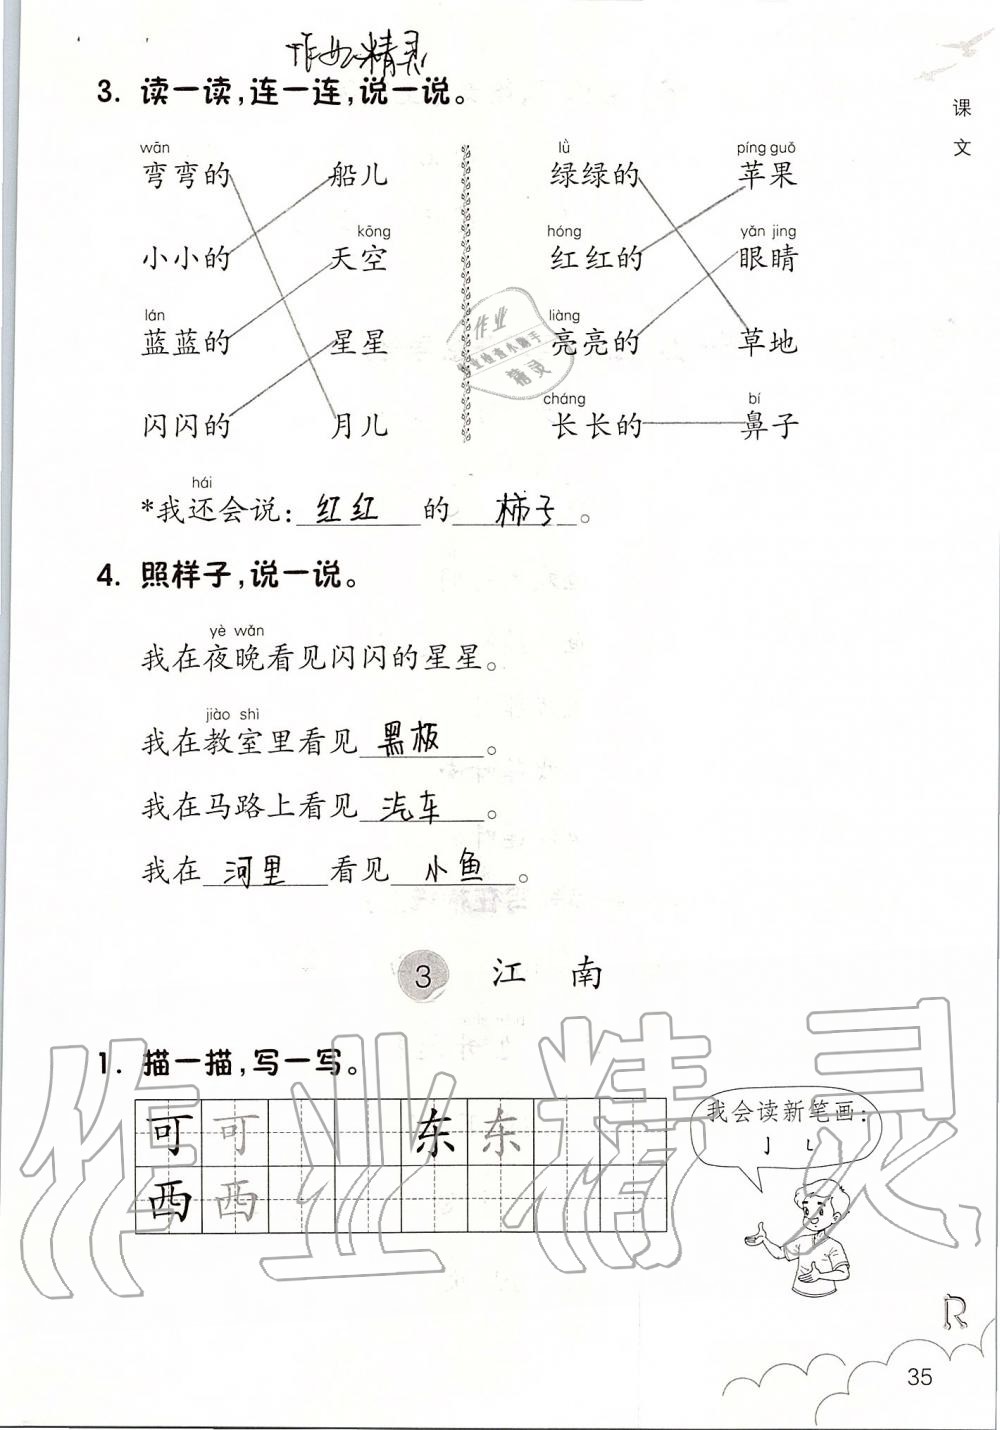 作业精灵
3. 读一读,连一连,说一说。
课文
wān
弯弯的 船儿
lǜ píng guǒ
绿绿的 苹果
kōng
小小的 天空
hóng yǎn jing
红红的 眼睛
lán
蓝蓝的 星星
liàng
亮亮的 草地
闪闪的 月儿
cháng bí
长长的 鼻子
作业
业检查小助手
精灵
hái
*我还会说:红红的柿子。
4. 照样子,说一说。
yè wǎn
我在夜晚看见闪闪的星星。
jiào shì
我在教室里看见黑板。
我在马路上看见汽车。
我在河里看见小鱼。
3 江南
1. 描一描,写一写。
可 可 东 东
西 西
我会读新笔画:
亅 ㇄
作业精灵
R
35